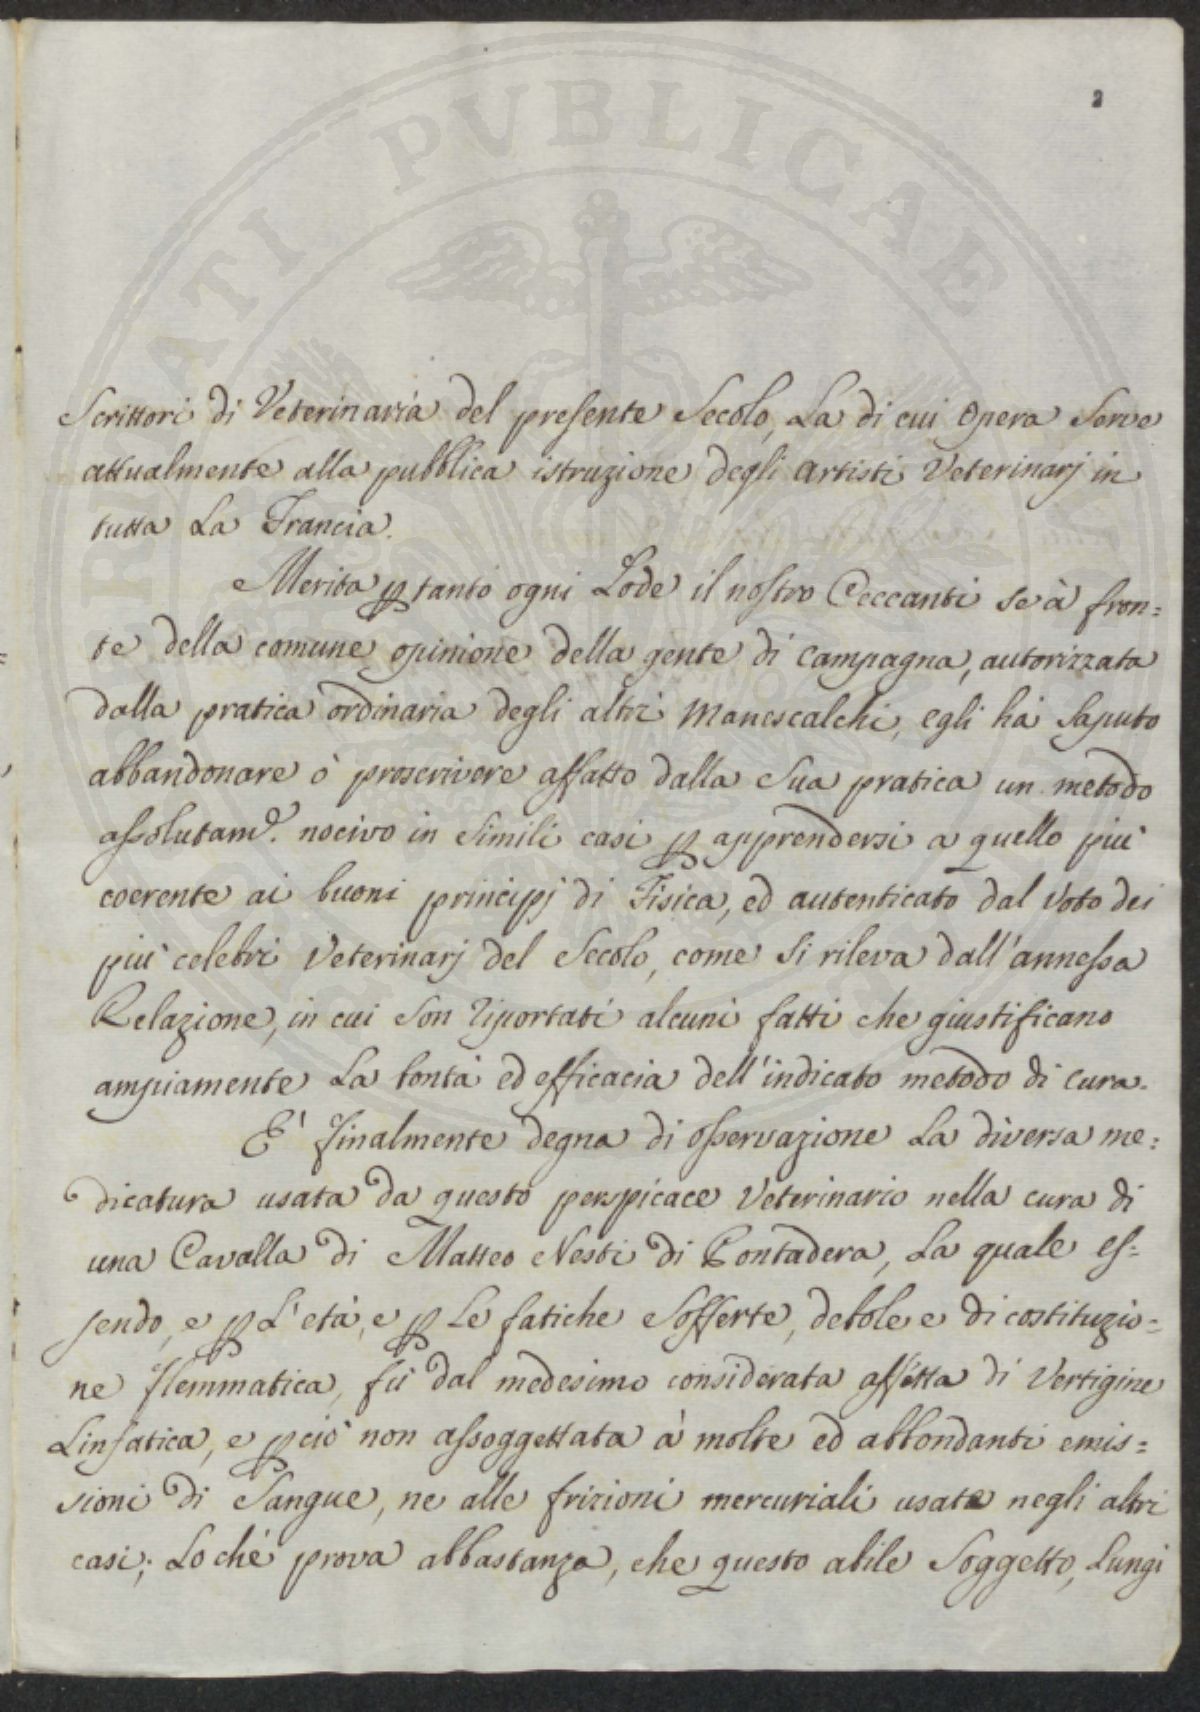 PVBLICAE
2
Scrittori di Veterinaria del presente Secolo, La di cui Opera Serve
attualmente alla pubblica istruzione degli Artisti Veterinarj in
tutta La Francia.
Merita p tanto ogni Lode il nostro Ceccanti se à fron=
te della comune opinione della gente di Campagna, autorizzata
dalla pratica ordinaria degli altri Manescalchi, egli hà saputo
abbandonare ò proscrivere affatto dalla Sua pratica un metodo
assolutam.e nocivo in Simili casi p apprendersi a quello più
coerente ai buoni principj di Fisica, ed autenticato dal Voto dei
più celebri Veterinarj del Secolo, come Si rileva dall'annessa
Relazione, in cui Son riportati alcuni fatti che giustificano
ampiamente La bontà ed efficacia dell'indicato metodo di cura.
E' finalmente degna di osservazione La diversa me=
dicatura usata da questo perspicace Veterinario nella cura di
una Cavalla di Matteo Nesti di Pontadera, La quale es=
sendo, e p L'età, e p Le fatiche Sofferte, debole e di costituzio=
ne flemmatica, fù dal medesimo considerata affetta di Vertigine
Linfatica, e pciò non assoggettata à molte ed abbondanti emis=
sioni di Sangue, ne alle frizioni mercuriali usate negli altri
casi; Lochè prova abbastanza, che questo abile Soggetto, Lungi